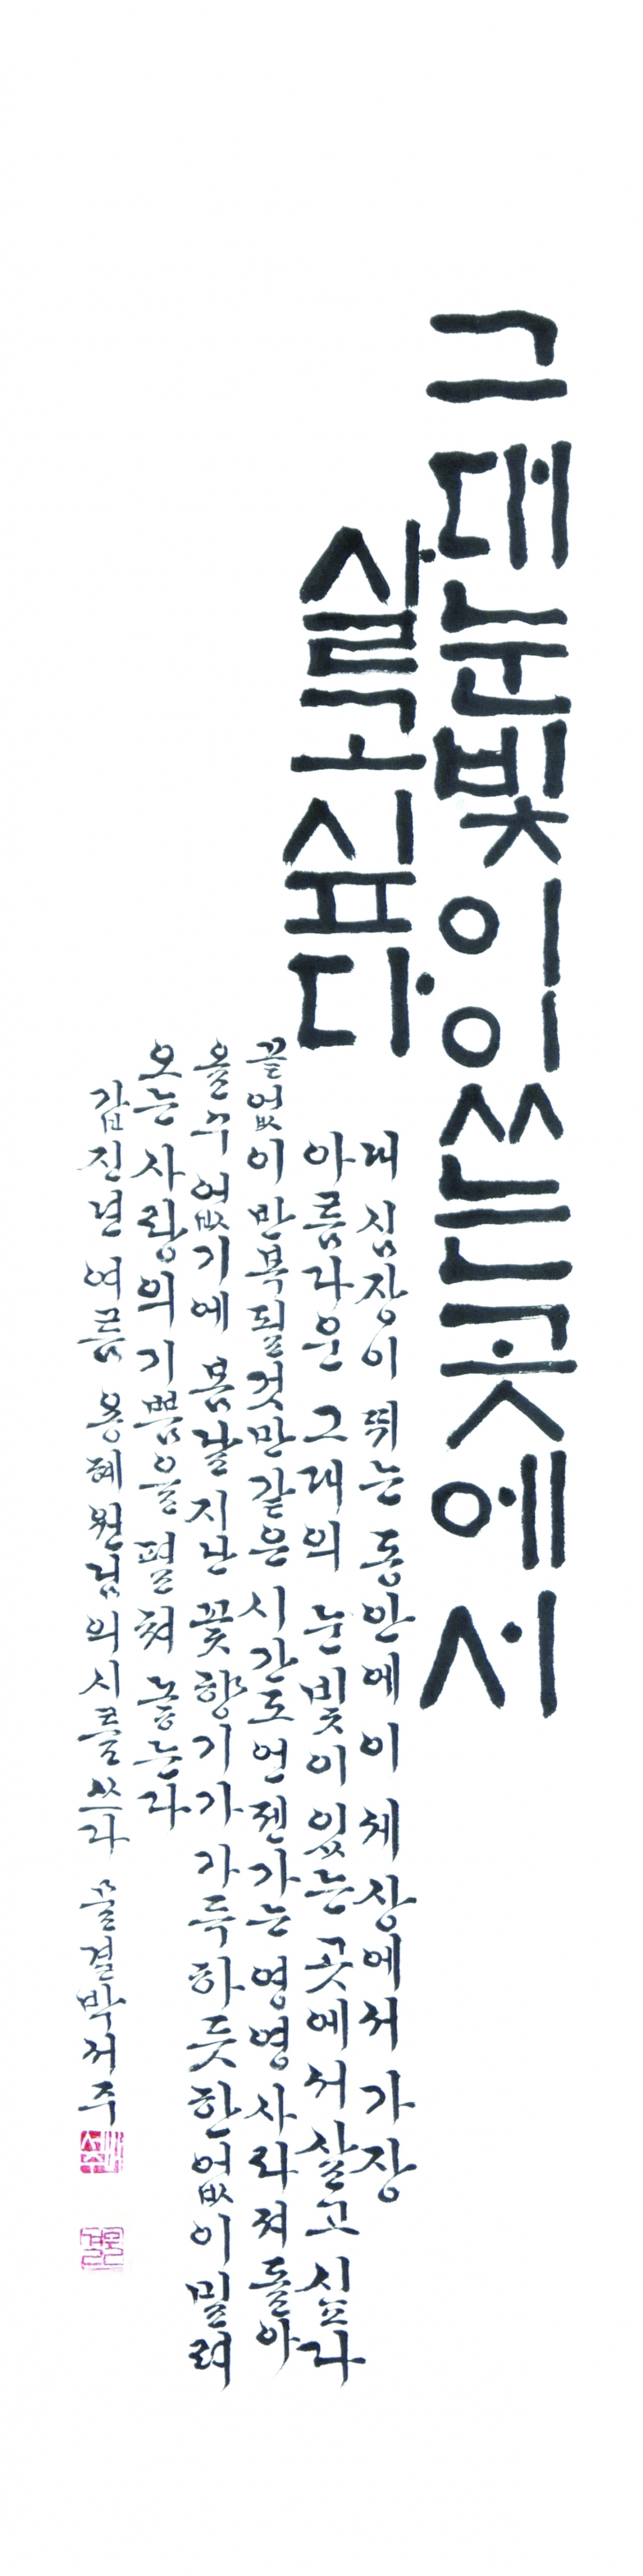 그대 눈빛이 있는 곳에서
살고싶다
내 심장이 뛰는 동안에 이 세상에서 가장
아름다운 그대의 눈빛이 있는 곳에서 살고 싶다
끝없이 반복될 것만 같은 시간도 언젠가는 영영 사라져 돌아
올 수 없기에 봄날 지난 꽃향기가 가득하듯 한없이 밀려
오는 사랑의 기쁨을 펼쳐 놓는다
갑진년 여름 용혜원님의 시를 쓰다 물결 박서주